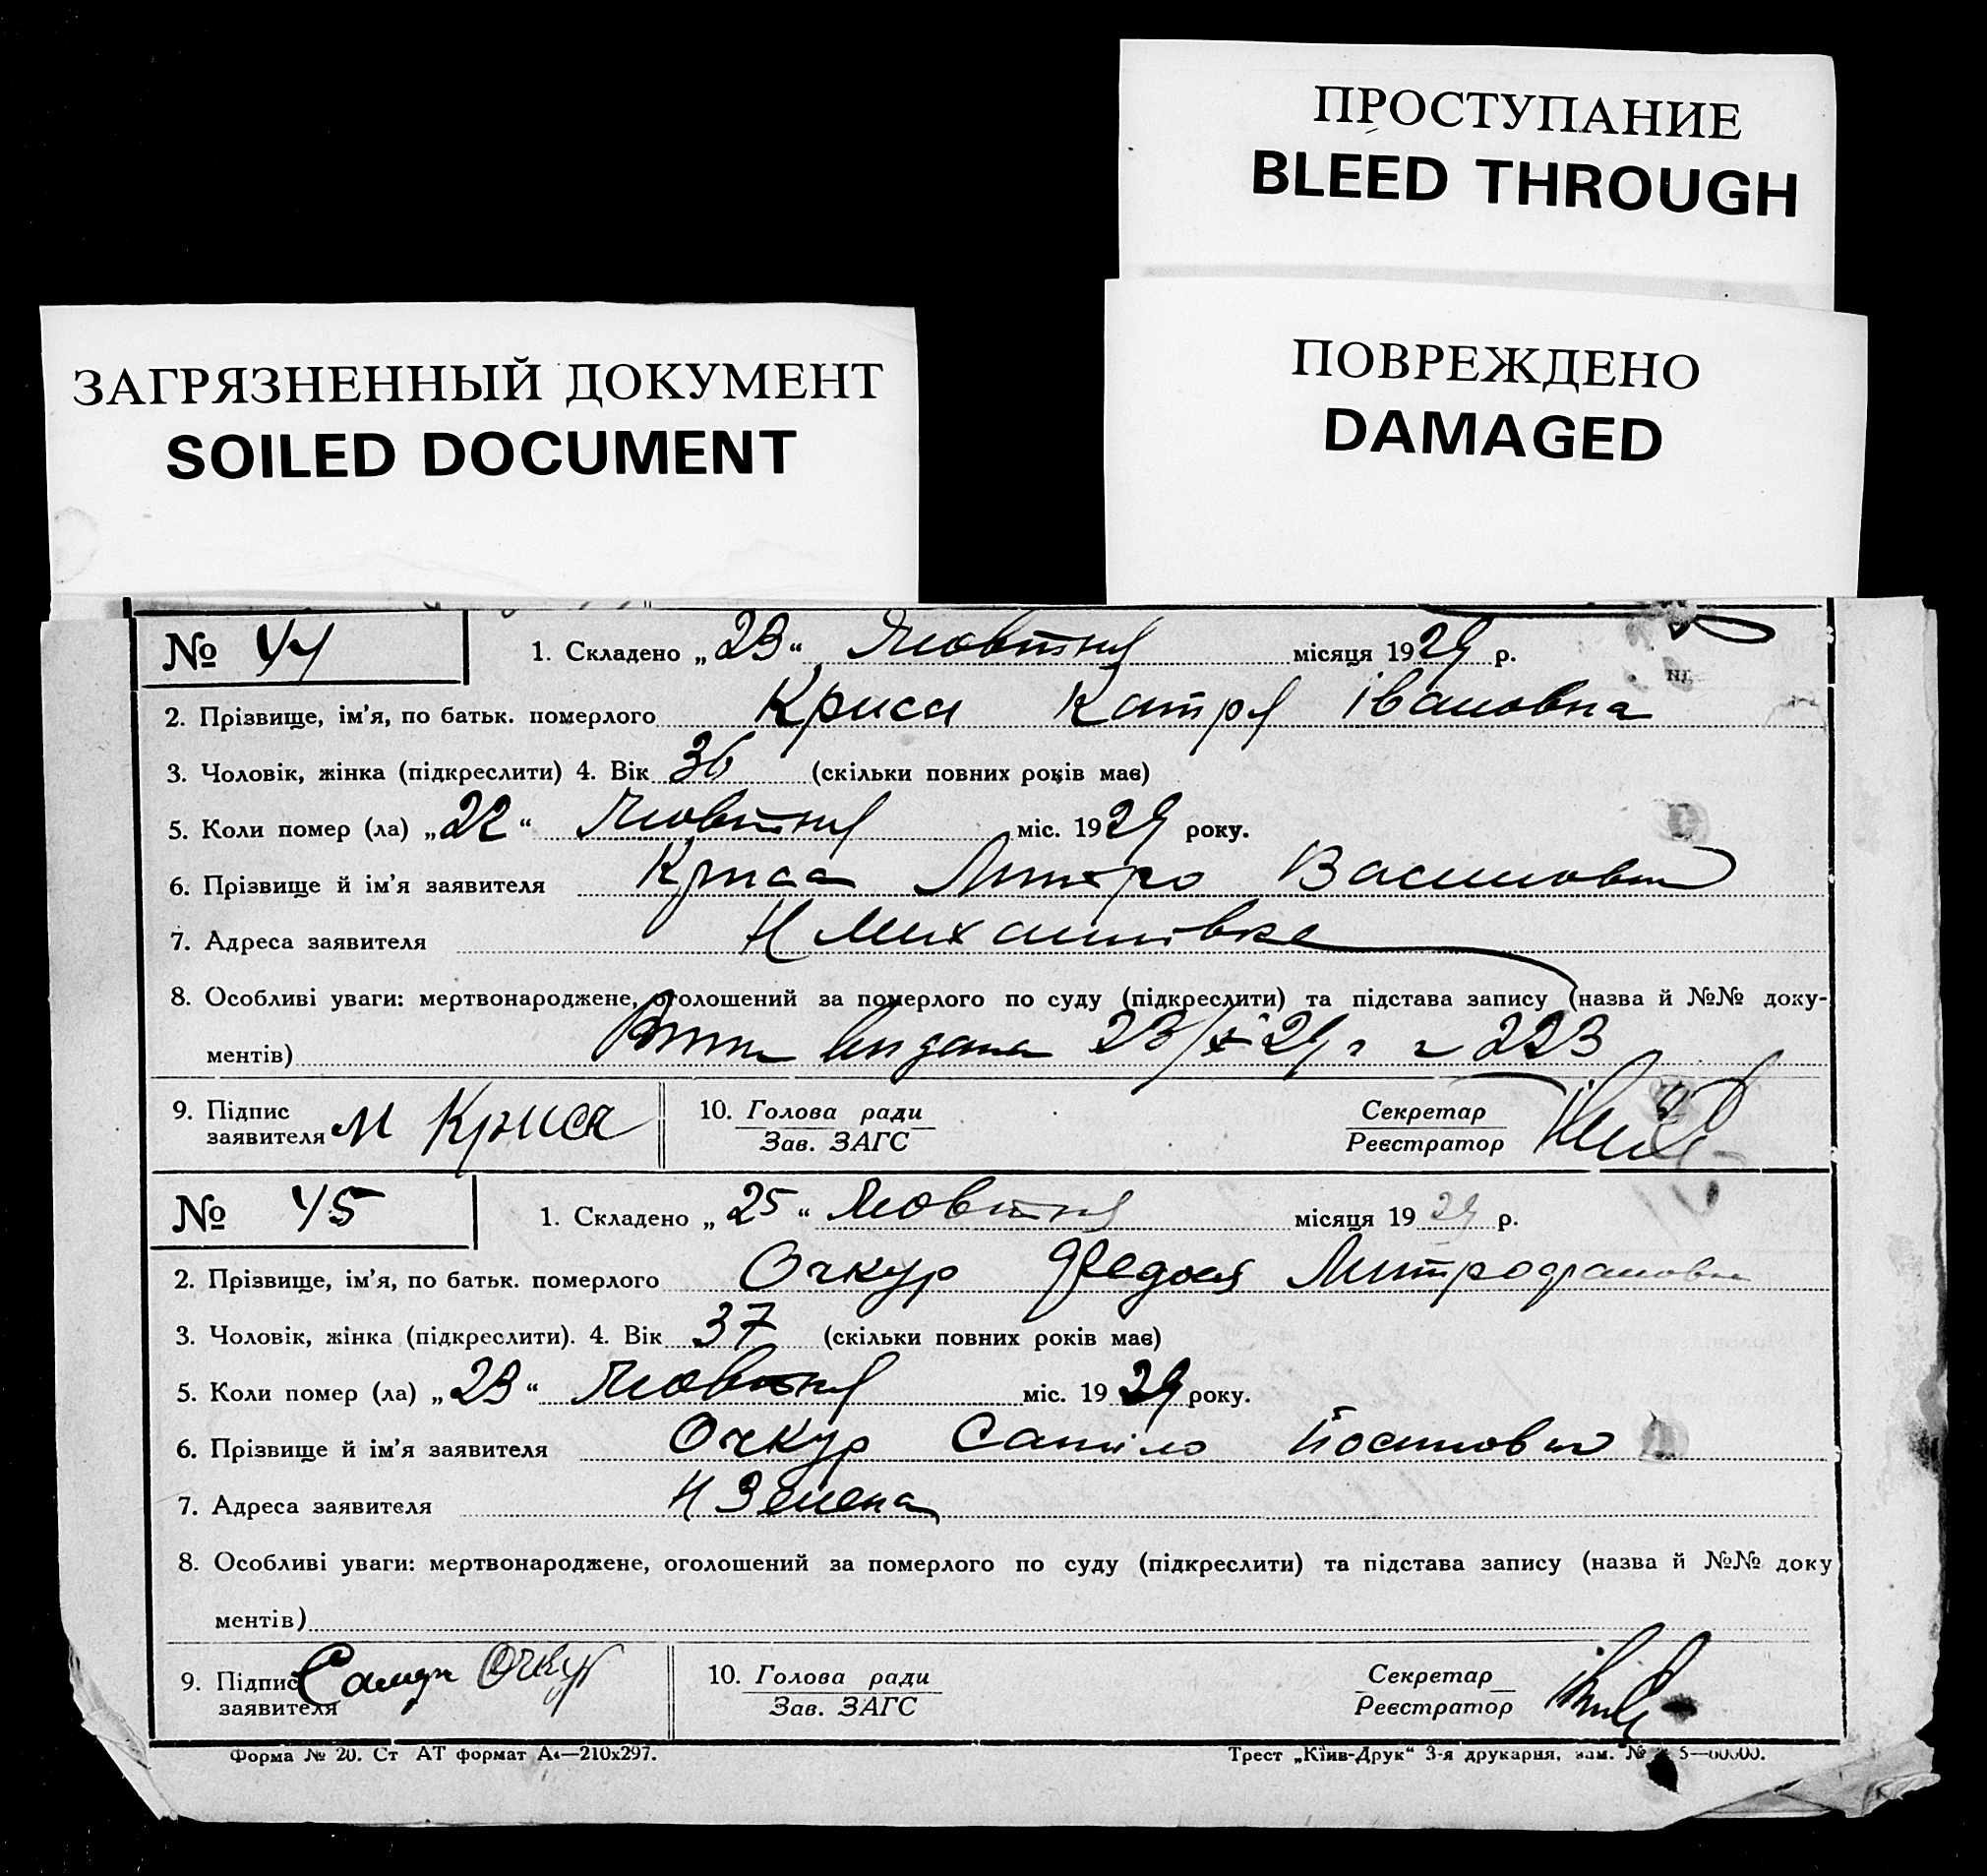 ПРОСТУПАНИЕ
BLEED THROUGH
ЗАГРЯЗНЕННЫЙ ДОКУМЕНТ
SOILED DOCUMENT
ПОВРЕЖДЕНО
DAMAGED
№ 44 1. Складено „23“ Жовтня місяця 1929 р.
2. Прізвище, ім'я, по батьк. померлого Криса Катря Івановна
3. Чоловік, жінка (підкреслити) 4. Вік 36 (скільки повних років має)
5. Коли помер (ла) „22“ Жовтня міс. 1929 року.
6. Прізвище й ім'я заявителя Криса Митро Васильович
7. Адреса заявителя Н Михайлівка
8. Особливі уваги: мертвонароджене, оголошений за померлого по суду (підкреслити) та підстава запису (назва й №№ доку-
ментів) видана 23/X-29 р 223
9. Підпис заявителя М Криса 10. Голова ради Зав. ЗАГС Секретар Реєстратор
№ 45 1. Складено „25“ Жовтня місяця 1929 р.
2. Прізвище, ім'я, по батьк. померлого Очкур Федося Митрофановна
3. Чоловік, жінка (підкреслити). 4. Вік 37 (скільки повних років має)
5. Коли помер (ла) „23“ Жовтня міс. 1929 року.
6. Прізвище й ім'я заявителя Очкур Йосипович
7. Адреса заявителя Н Зелена
8. Особливі уваги: мертвонароджене, оголошений за померлого по суду (підкреслити) та підстава запису (назва й №№ доку
ментів)
9. Підпис заявителя Очкур 10. Голова ради Зав. ЗАГС Секретар Реєстратор
Форма № 20. Ст АТ формат А4—210х297. Трест „Київ-Друк“ 3-я друкарня, зам. №